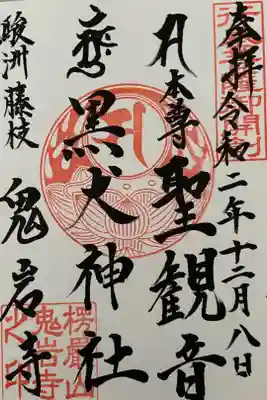 奉拝令和二年十二月八日
本尊聖観音
黒犬神社
駿洲藤枝
鬼岩寺
楞嚴山
鬼岩寺
之印